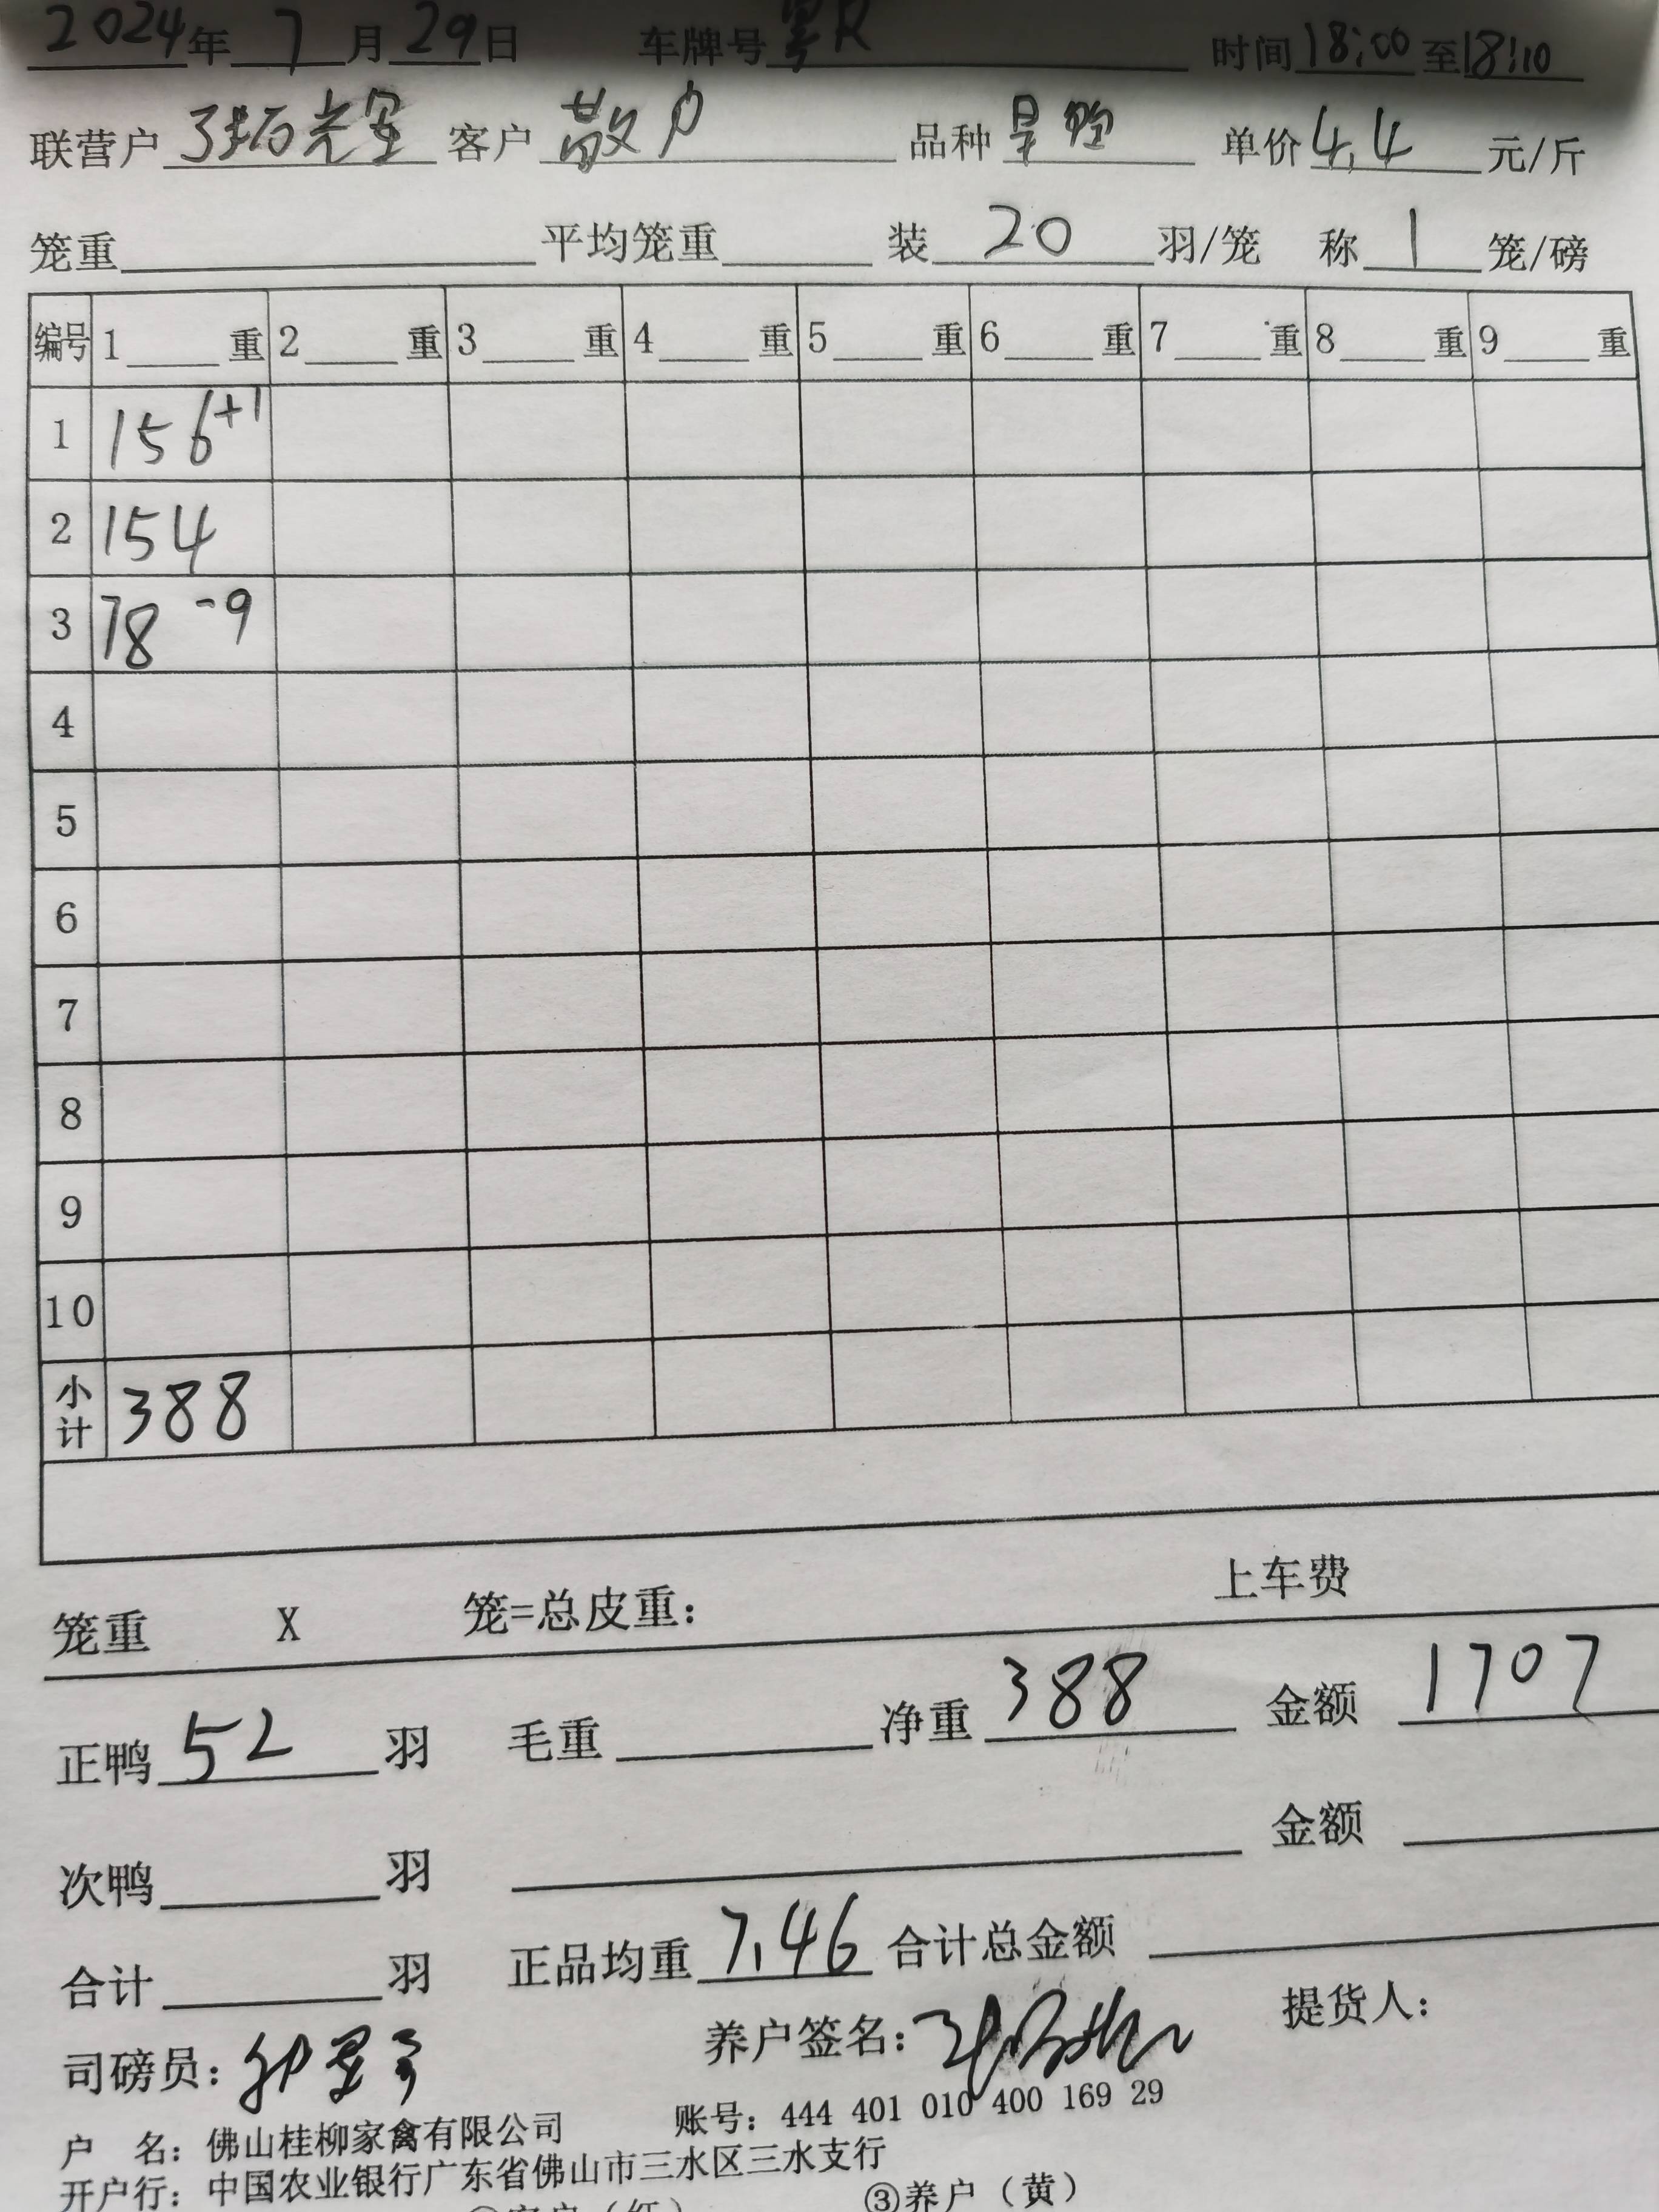 2024年 7 月 29日 车牌号 粤R 时间 18:00 至 18:10
联营户 客户 散户 品种 单价 4.4 元/斤
笼重 平均笼重 装 20 羽/笼 称 1 笼/磅
编号 1 重 2 重 3 重 4 重 5 重 6 重 7 重 8 重 9 重
1 156+1
2 154
3 78 -9
4
5
6
7
8
9
10
小计 388
笼重 X 笼=总皮重: 上车费
正鸭 52 羽 毛重 净重 388 金额 1707
次鸭 羽 金额
合计 羽 正品均重 7.46 合计总金额
司磅员: 养户签名: 提货人:
户 名: 佛山桂柳家禽有限公司 账号: 444 401 010 400 169 29
开户行: 中国农业银行广东省佛山市三水区三水支行
客户（红） ③养户（黄）